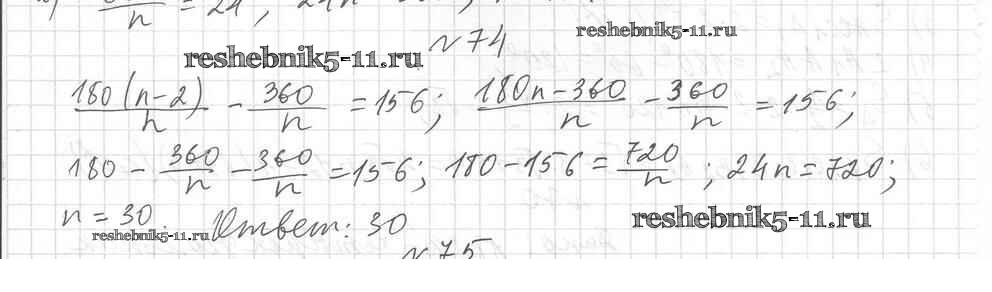 n = 24; 24n
reshebnik5-11.ru
№74
reshebnik5-11.ru
180(n-2)/n - 360/n = 156; 180n-360/n - 360/n = 156;
180 - 360/n - 360/n = 156; 180-156 = 720/n; 24n = 720;
n = 30. Ответ: 30
reshebnik5-11.ru
reshebnik5-11.ru
№75